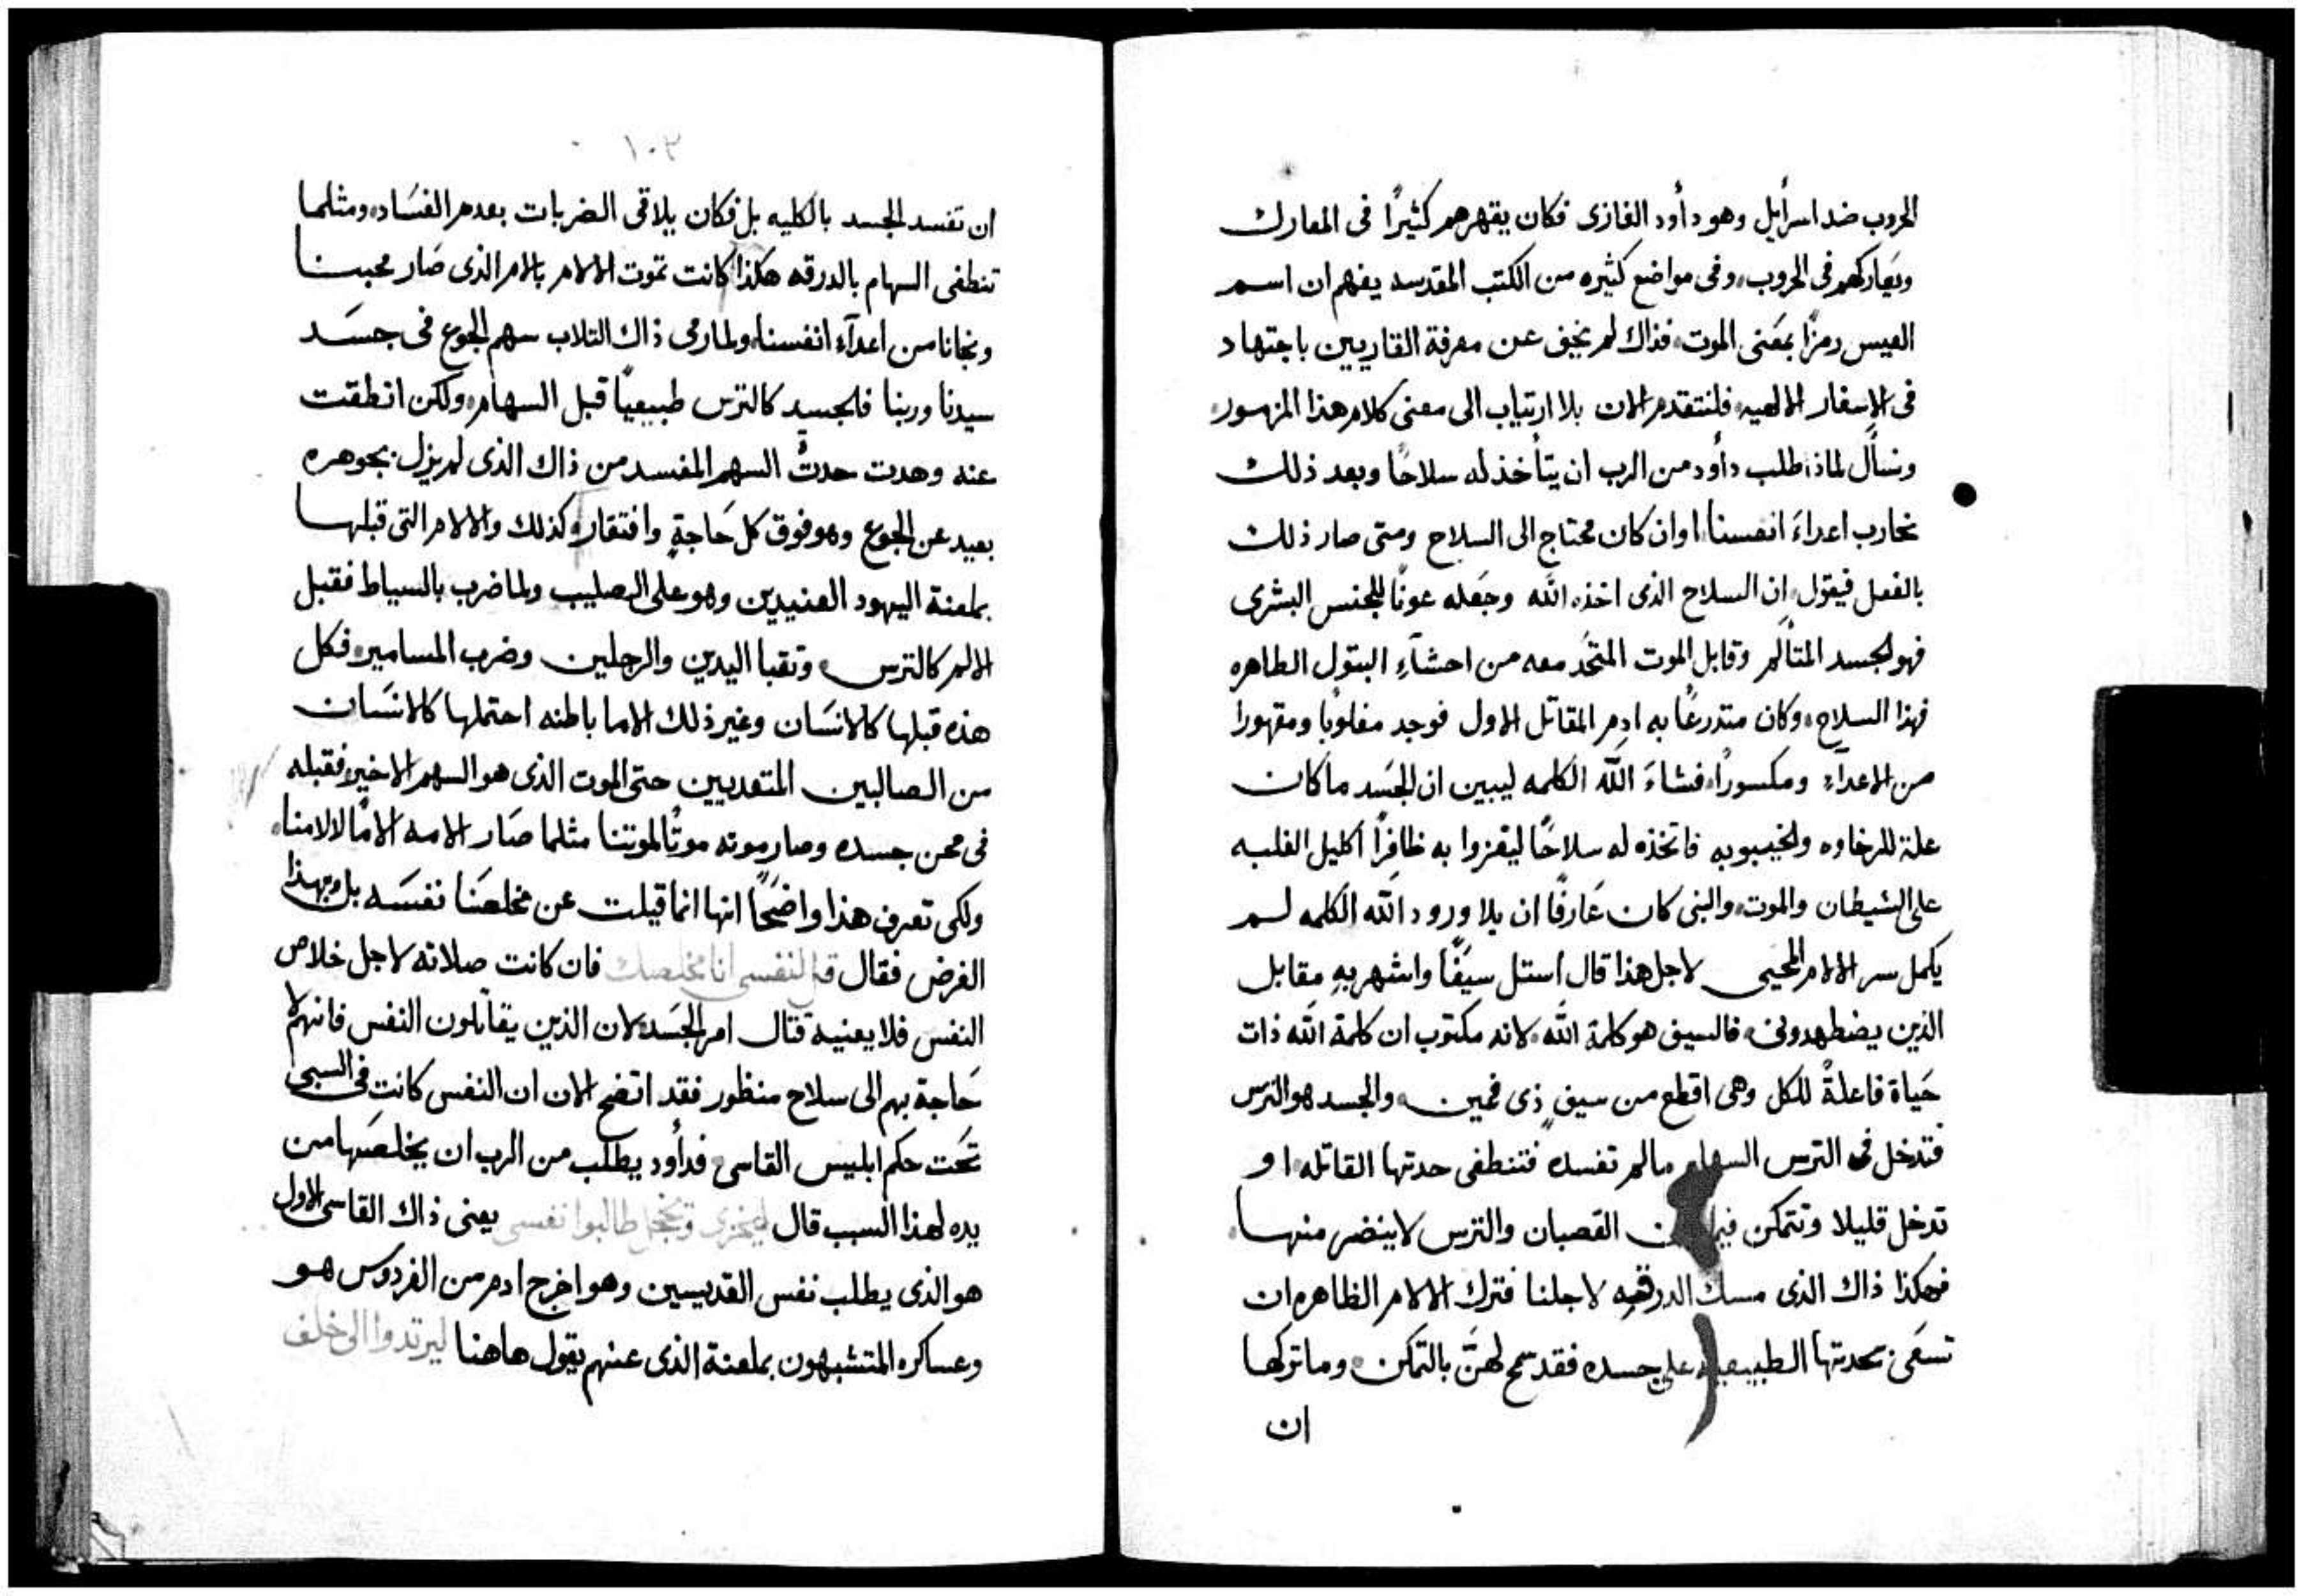 الحروب ضد اسرأيل وهو دأود الغازى فكان يقهرهم كثيرًا فى المعارك
ويعاركهم فى الحروب، وفى مواضع كثيره من الكتب المقدسه يفهم ان اسم
العيس رمزًا بمعَنى الموت، فذاك لم يخفِ عن معرفة القاريين باجتهاد
فى الاسفار الالهيه، فلنتقدم الان بلا ارتياب الى معنى كلام هذا المزمور،
ونسأل لماذا طلب دأود من الرب ان يتأخذ له سلاحًا وبعد ذلك
نحارب اعداءَ انفسنا، اوان كان محتاج الى السلاح ومتى صار ذلك
بالفعل فيقول، ان السلاح الذى اخذه الله وجعَله عونًا للجنس البشرى
فهو الجسد المتألم وقابل الموت المتحَد معه من احشآءِ البتول الطاهره
فهذا السلاح، وكان متدرعًا به ادم المقاتل الاول فوجد مغلوبًا ومقهورا
من الاعدآءِ ومكسورًا، فشاءَ اللّه الكلمه ليبين ان الجسَد ما كان
علة للرخاوه والخيبوبه فاتخذه له سلاحًا ليغزوا به ظافِرًا اكليل الغلبه
على الشيطان والموت، والنبى كان عَارفًا ان بلا ورود اللّه الكلمه لم
يكمل سر الالام المحيى لاجل هذا قال استل سيفًا واشهر بهِ مقابل
الذين يضطهدونى، فالسيف هو كلمة اللّه، لانه مكتوب ان كلمة اللّه ذات
حَياة فاعلةً للكل وهى اقطع من سيفٍ ذى فمين، والجسد هو الترس
فتدخل فى الترس السهام مالم تفسده فتنطفى حدتها القاتله، او
تدخل قليلا وتتمكن القصبان والترس لا ينضر منها،
فهكذا ذاك الذى مسك الدرقه لاجلنا فترك الالام الظاهره ان
تسعَى بحدتها الطبيعيه على جسده فقد سمح لهنّ بالتمكن، وما تركها
ان
١٠٣
ان تفسد الجسد بالكليه بل فكان يلاقى الضربات بعدم الفسَاد، ومثلما
تنطفى السهام بالدرقه هكذا كانت تموت الالام بالام الذى صَار محبنا
ونجانا من اعدآءِ انفسنا، ولما رمى ذاك الثلاب سهم الجوع فى جسَد
سيدنا وربنا فالجسد كالترس طبيعيًا قبل السهام، ولكن انطقت
عنه وهدت حدتُّ السهم المفسد من ذاك الذى لم يزل بجوهره
بعيد عن الجوع وهو فوق كل حَاجةٍ وافتقار، وكذلك والالام التى قبلها
بملعنة اليهود العنيدين وهو على الصليب ولما ضرب بالسياط فقبل
الالم كالترس، وتقبا اليدين والرجلين وضرب المسامير، فكل
هذه قبلها كالانسَان وغير ذلك الاما باطنه احتملها كالانسَان
من الصالبين المتعديين حتى الموت الذى هو السهم الاخير، فقبله
فى محن جسده وصار موته موتًا لموتنا مثلما صَار الامه الامًا لالامنا،
ولكى تعرف هذا واضحًا انها انما قيلت عن مخلصَنا نفسَه بل وبهذا
الغرض فقال قل لنفسى انا مخلصك فان كانت صلاته لاجل خلاص
النفس فلا يعنيه قتال امر الجسَد، لان الذين يقاتلون النفس فانهم لا
حَاجة بهم الى سلاح منظور فقد اتضح الان ان النفس كانت فى السبى
تحَت حكم ابليس القاسى، فدأود يطلب من الرب ان يخلصَها من
يده لهذا السبب قال ليخزى ويخجل طالبوا نفسى يعنى ذاك القاسى الاول
هو الذى يطلب نفس القديسين وهو اخرج ادم من الفردوس هو
وعساكره المتشبهون بملعنة الذى عنهم يقول هاهنا ليرتدوا الى خلف